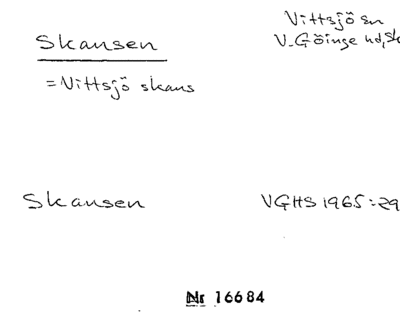 Vittsjö sn
Skansen
V-Göinge hd, Sk
= Vittsjö skans
Skansen
VGHS 1965:29
Nr 16684